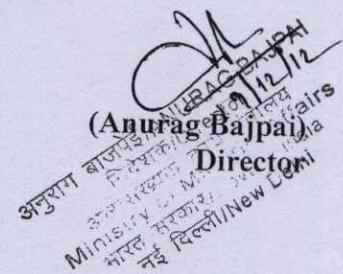 7/12/12
(Anurag Bajpai)
Director
अनुराग बाजपेई/ANURAG BAJPAI
निदेशक/
मंत्रालय
Ministry of M Affairs
भारत सरकार/
नई दिल्ली/New Delhi